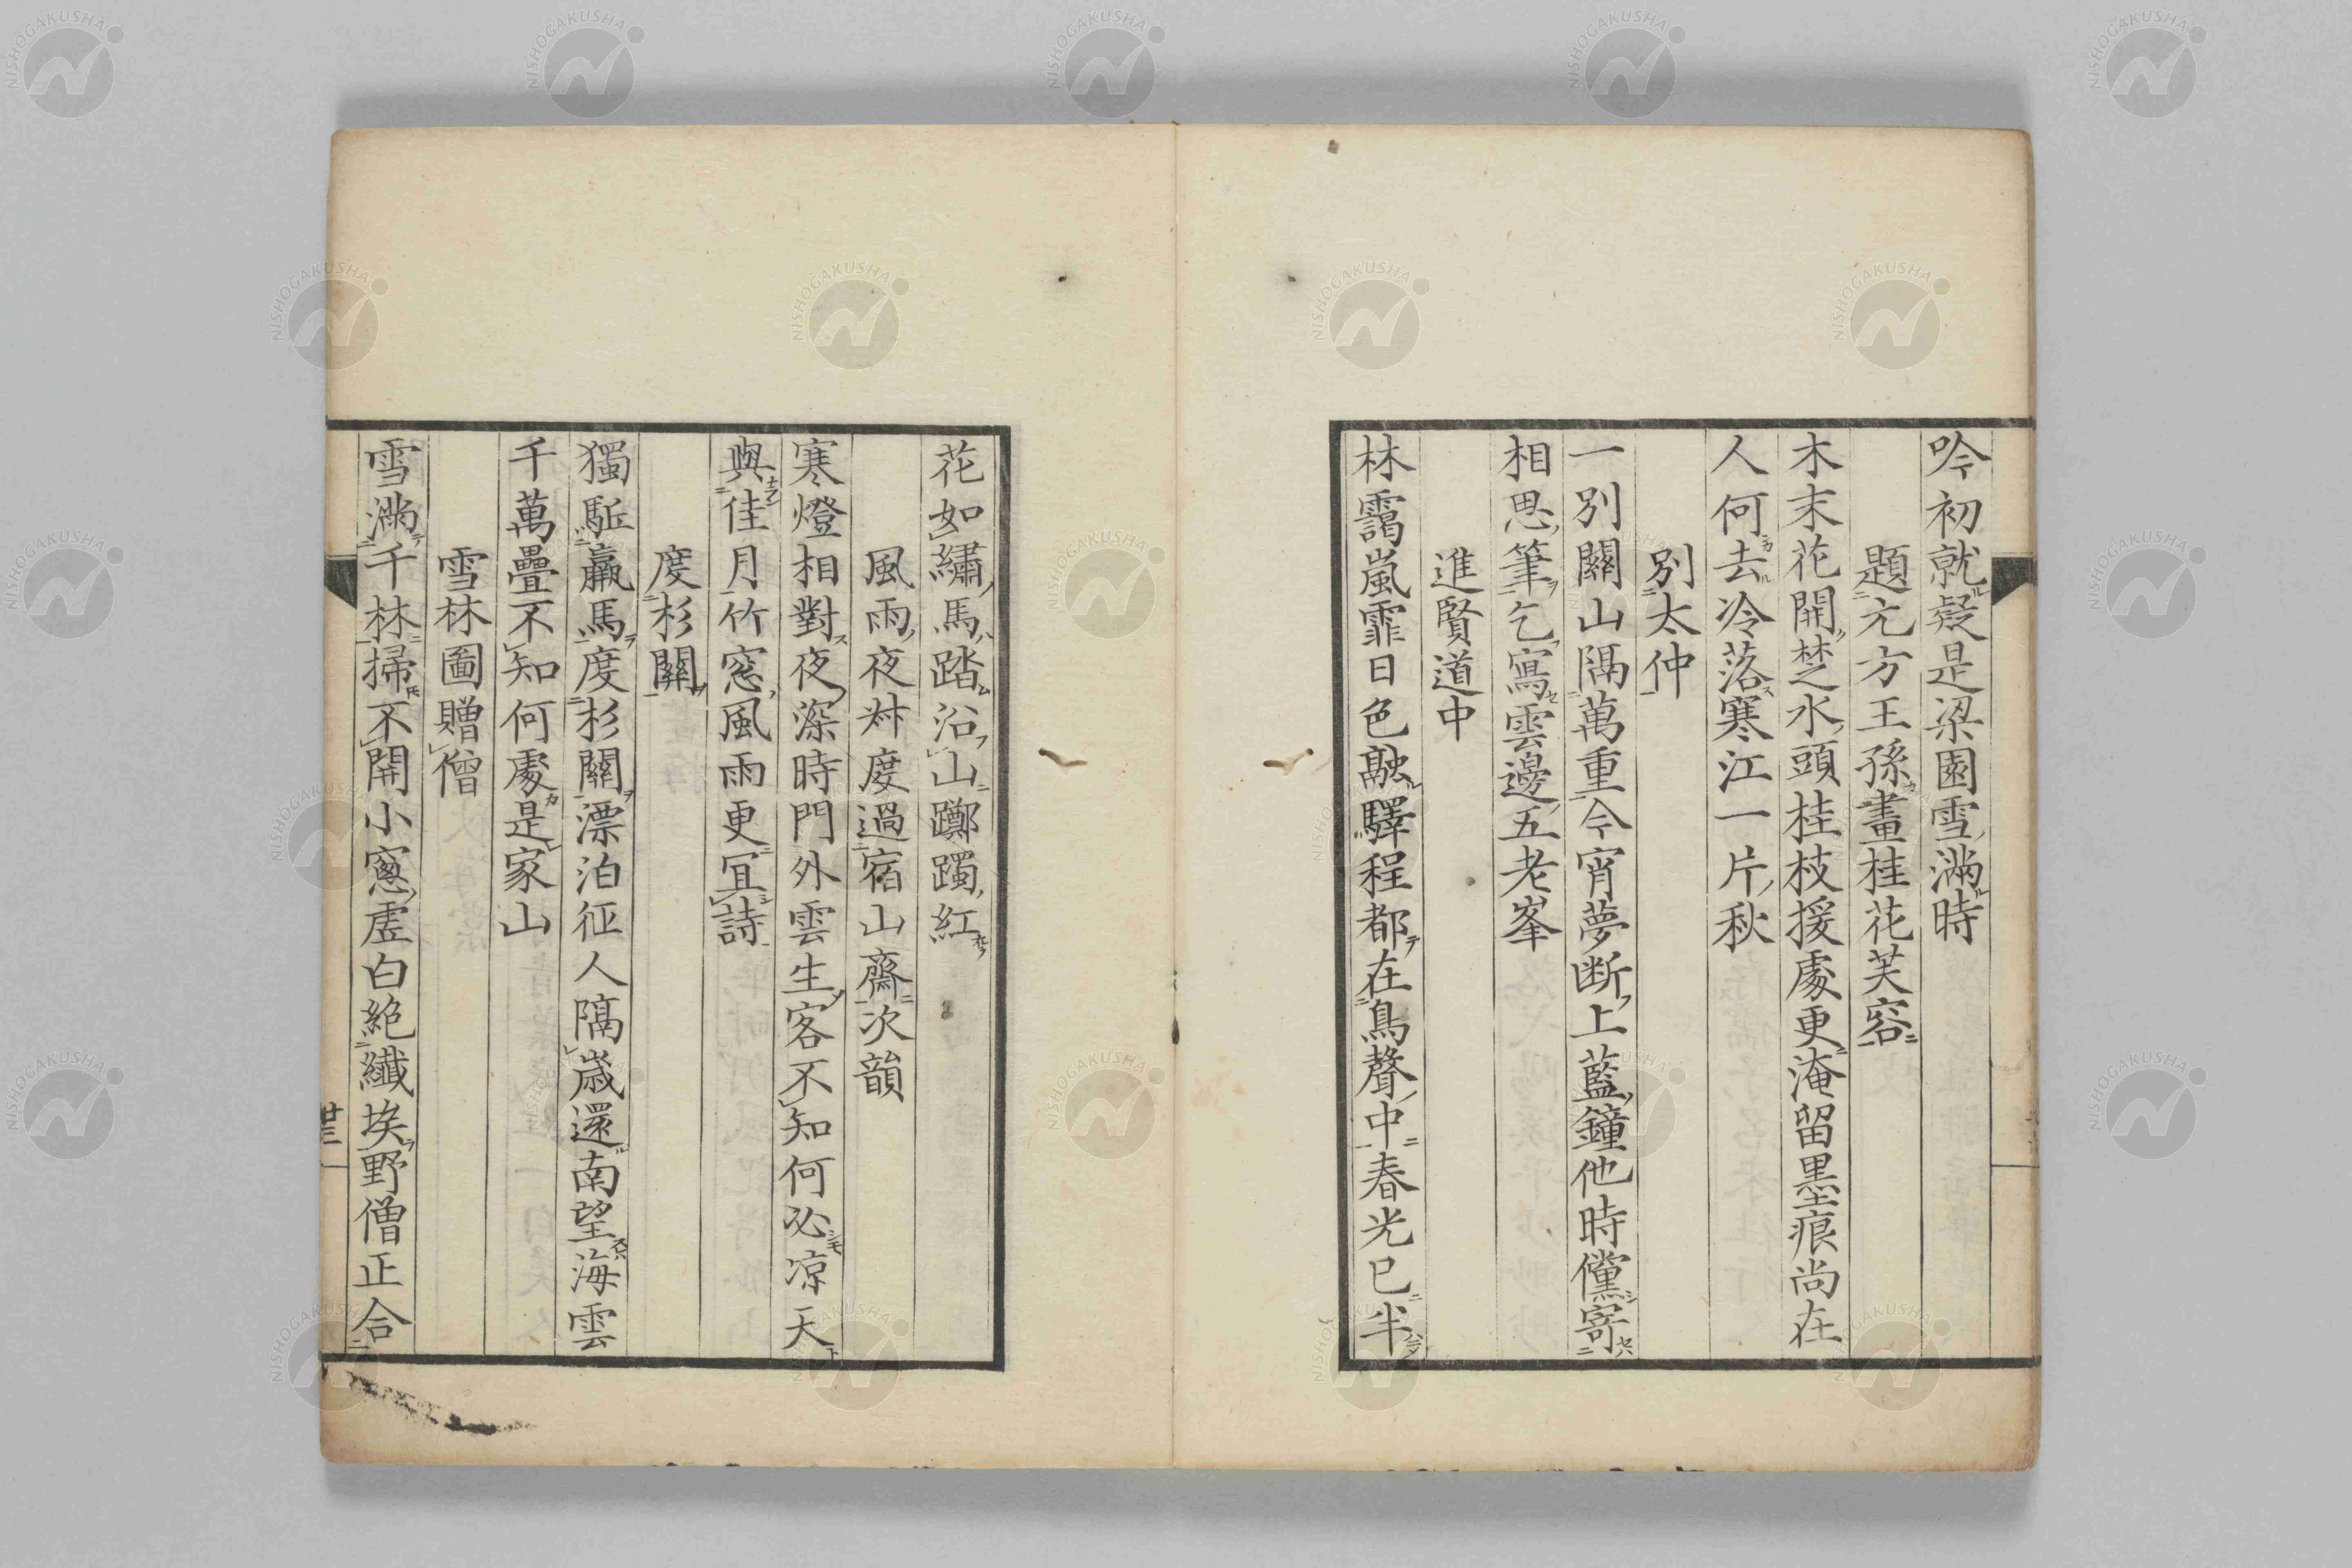 吟初就疑是梁園雪滿時
題元方王孫畫桂花芙容
木末花開楚水頭桂枝援處更淹留墨痕尚在
人何去冷落寒江一片秋
別太仲
一別關山隔萬重今宵夢斷上藍鐘他時儻寄
相思筆乞寫雲邊五老峯
進賢道中
林靄嵐霏日色融驛程都在鳥聲中春光已半
花如繡馬踏沿山躑躅紅
風雨夜娤度過宿山齋次韻
寒燈相對夜深時門外雲生客不知何必凉天
與佳月竹窓風雨更冝詩
度杉關
獨駈羸馬度杉關漂泊征人隔歳還南望海雲
千萬疊不知何處是家山
雪林圖贈僧
雪滿千林掃不開小窻虛白絶纖埃野僧正合
廿三
NISHOGAKUSHA